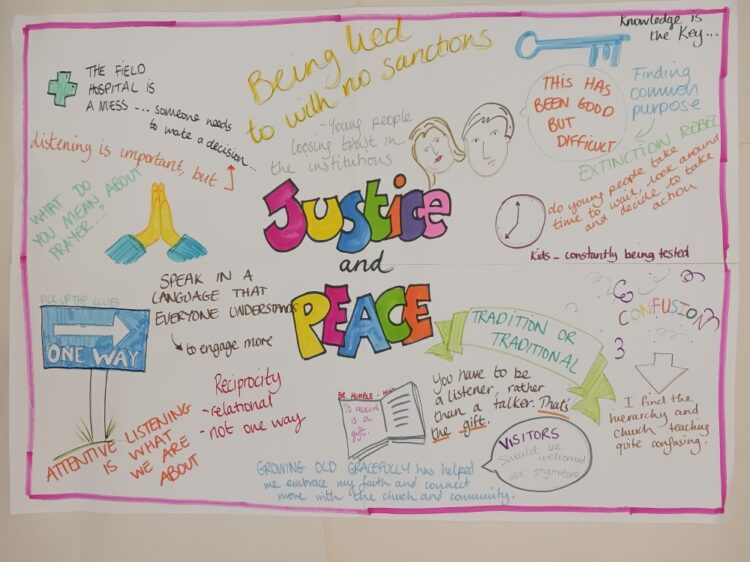 Knowledge is
the Key...
Being lied
to with no sanctions
THE FIELD
HOSPITAL IS
A MESS ... someone needs
to make a decision...
listening is important, but
- Young people
loosing trust in
the institutions
THIS HAS
BEEN GOOD
BUT
DIFFICULT
Finding
common
purpose
EXTINCTION REBEL
do young people take
time to wait, look around
and decide to take
action
Kids - constantly being tested
WHAT DO
YOU MEAN ABOUT
PRAYER...?
Justice
and
PEACE
SPEAK IN A
LANGUAGE THAT
EVERYONE UNDERSTANDS
to engage more
PICK UP THE CLUES
ONE WAY
Reciprocity
- relational
- not one way
ATTENTIVE LISTENING
IS WHAT
WE ARE
ABOUT
TRADITION OR
TRADITIONAL
CONFUSION
I find the
hierarchy and
church teaching
quite confusing.
BE HUMBLE -
To receive
is a
gift.
You have to be
a listener, rather
than a talker. That's
the gift.
VISITORS
should be
welcomed
not
GROWING OLD GRACEFULLY has helped
me embrace my faith and connect
more with the church and community.